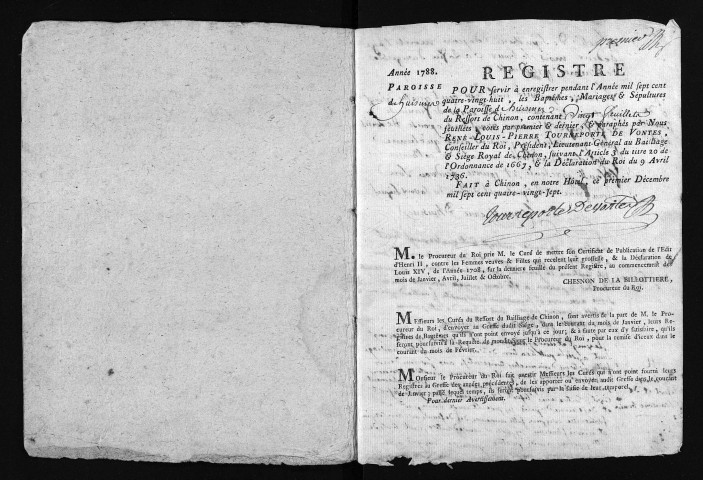 premier
Année 1788.
REGISTRE
PAROISSE
de huismes
POUR servir à enregistrer pendant l'Année mil sept cent
quatre-vingt-huit, les Baptêmes, Mariages & Sépultures
de la Paroisse d'huismes
du Ressort de Chinon, contenant Vingt feuillets
feuillets, cotés par premier & dernier, & paraphés par Nous
RENÉ-LOUIS-PIERRE TOURNEPORTE DE VONTES,
Conseiller du Roi, Président, Lieutenant-Général au Bailliage
& Siège Royal de Chinon, suivant l'Article 3 du titre 20 de
l'Ordonnance de 1667, & la Déclaration du Roi du 9 Avril
1736.
FAIT à Chinon, en notre Hôtel, ce premier Décembre
mil sept cent quatre-vingt-sept.
Tourneporte De Vontes
M. le Procureur du Roi prie M. le Curé de mettre son Certificat de Publication de l'Edit
d'Henri II, contre les Femmes veuves & Filles qui recelent leur grossesse, & la Déclaration de
Louis XIV, de l'Année 1708, sur la derniere feuille du présent Registre, au commencement des
mois de Janvier, Avril, Juillet & Octobre.
CHESNON DE LA BILLOTTIERE,
Procureur du Roi.
Messieurs les Curés du Ressort du Bailliage de Chinon, sont avertis de la part de M. le Pro-
cureur du Roi, d'envoyer au Greffe dudit Siège, dans le courant du mois de Janvier, leurs Re-
gistres de Baptêmes qu'ils n'ont point envoyé jusqu'à ce jour; & à faute par eux d'y satisfaire, qu'ils
seront poursuivis à la Requête de mondit sieur le Procureur du Roi, pour la remise d'iceux dans le
courant du mois de Février.
Monsieur le Procureur du Roi fait avertir Messieurs les Curés qui n'ont point fourni leurs
Registres au Greffe des années précédentes, de les apporter ou envoyer audit Greffe dans le courant
de Janvier; passé lequel temps, ils seront poursuivis par la saisie de leur temporel.
Pour dernier Avertissement.